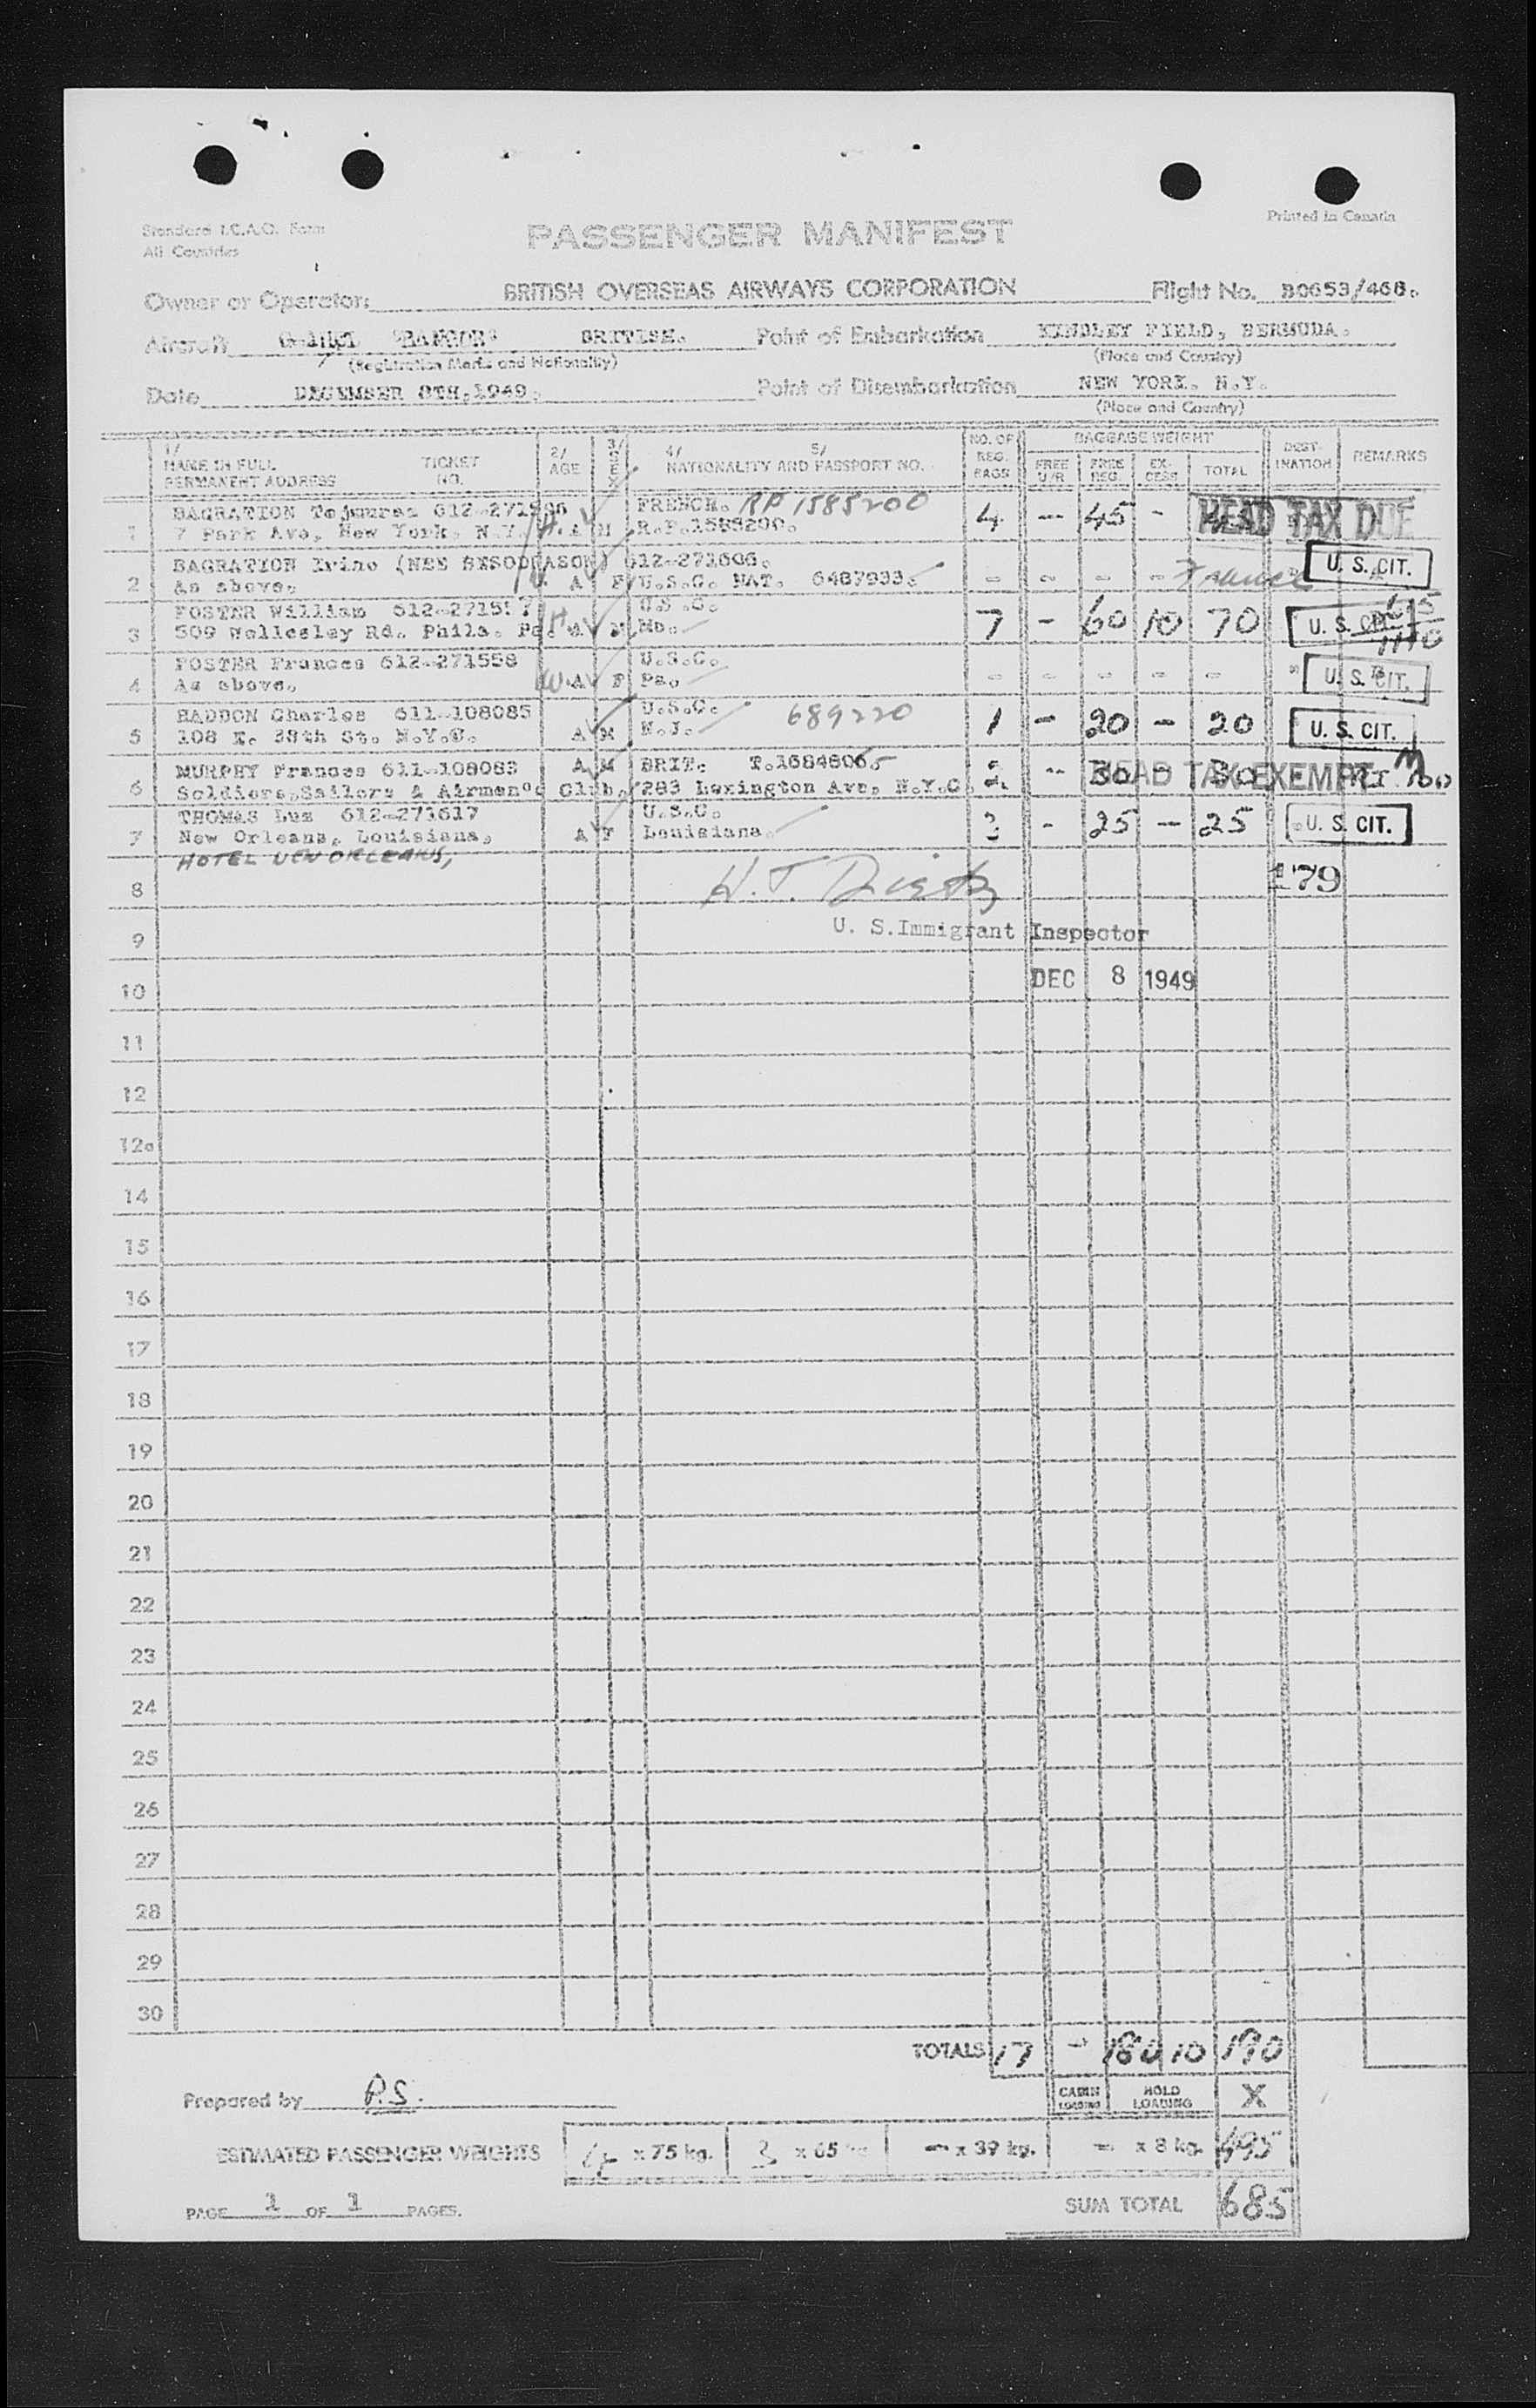 Standard I.C.A.O. Form
All Countries
Printed in Canada
PASSENGER MANIFEST
Owner or Operator: BRITISH OVERSEAS AIRWAYS CORPORATION Flight No. BO653/468.
Aircraft "BANGOR" BRITISH. Point of Embarkation KINDLEY FIELD, BERMUDA.
(Registration Marks and Nationality) (Place and Country)
Date DECEMBER 8TH,1949. Point of Disembarkation NEW YORK. N.Y.
(Place and Country)
1/ NAME IN FULL PERMANENT ADDRESS TICKET NO. 2/ AGE 3/ SEX 4/ 5/ NATIONALITY AND PASSPORT NO. NO. OF REG. BAGS BAGGAGE WEIGHT FREE U/R FREE REG. EXCESS TOTAL DESTINATION REMARKS
1 BAGRATION 612-271 FRENCH. RP 1585200
7 Park Ave, New York, N.Y. A M R.P.1585200. 4 - 45 - HEAD TAX DUE
BAGRATION Irine (NEE 612-271606. U. S. CIT.
2 As above. A F U.S.C. NAT. 6487933. - - - - France
FOSTER William 612-271557 U.S.C.
3 509 Wellesley Rd. Phila. Pa. A M Mo. 7 - 60 10 70 U. S. CIT.
FOSTER Frances 612-271558 U.S.C.
4 As above. W. A F Pa. - - - - - U. S. CIT.
Charles 611-108085 U.S.C. 689220
5 108 E. 38th St. N.Y.C. A M N.J. 1 - 20 - 20 U. S. CIT.
MURPHY Frances 611-108083 A M BRIT. T.1684806.
6 Soldiers,Sailors & Airmen's Club, 283 Lexington Ave, N.Y.C. 2 - 30 - 30 HEAD TAX EXEMPT
THOMAS Luz 612-271617 U.S.C.
7 New Orleans, Louisiana, A F Louisiana. 3 - 25 - 25 U. S. CIT.
HOTEL NEW ORLEANS,
8 H. T. 179
9 U. S.Immigrant Inspector
10 DEC 8 1949
11
12
12a
14
15
16
17
18
19
20
21
22
23
24
25
26
27
28
29
30
TOTALS 17 - 180 10 190
Prepared by P.S. CABIN LOADING HOLD LOADING X
ESTIMATED PASSENGER WEIGHTS 4 x 75 kg. 3 x 65 kg - x 39 kg. - x 8 kg. 495
PAGE 1 OF 1 PAGES. SUM TOTAL 685